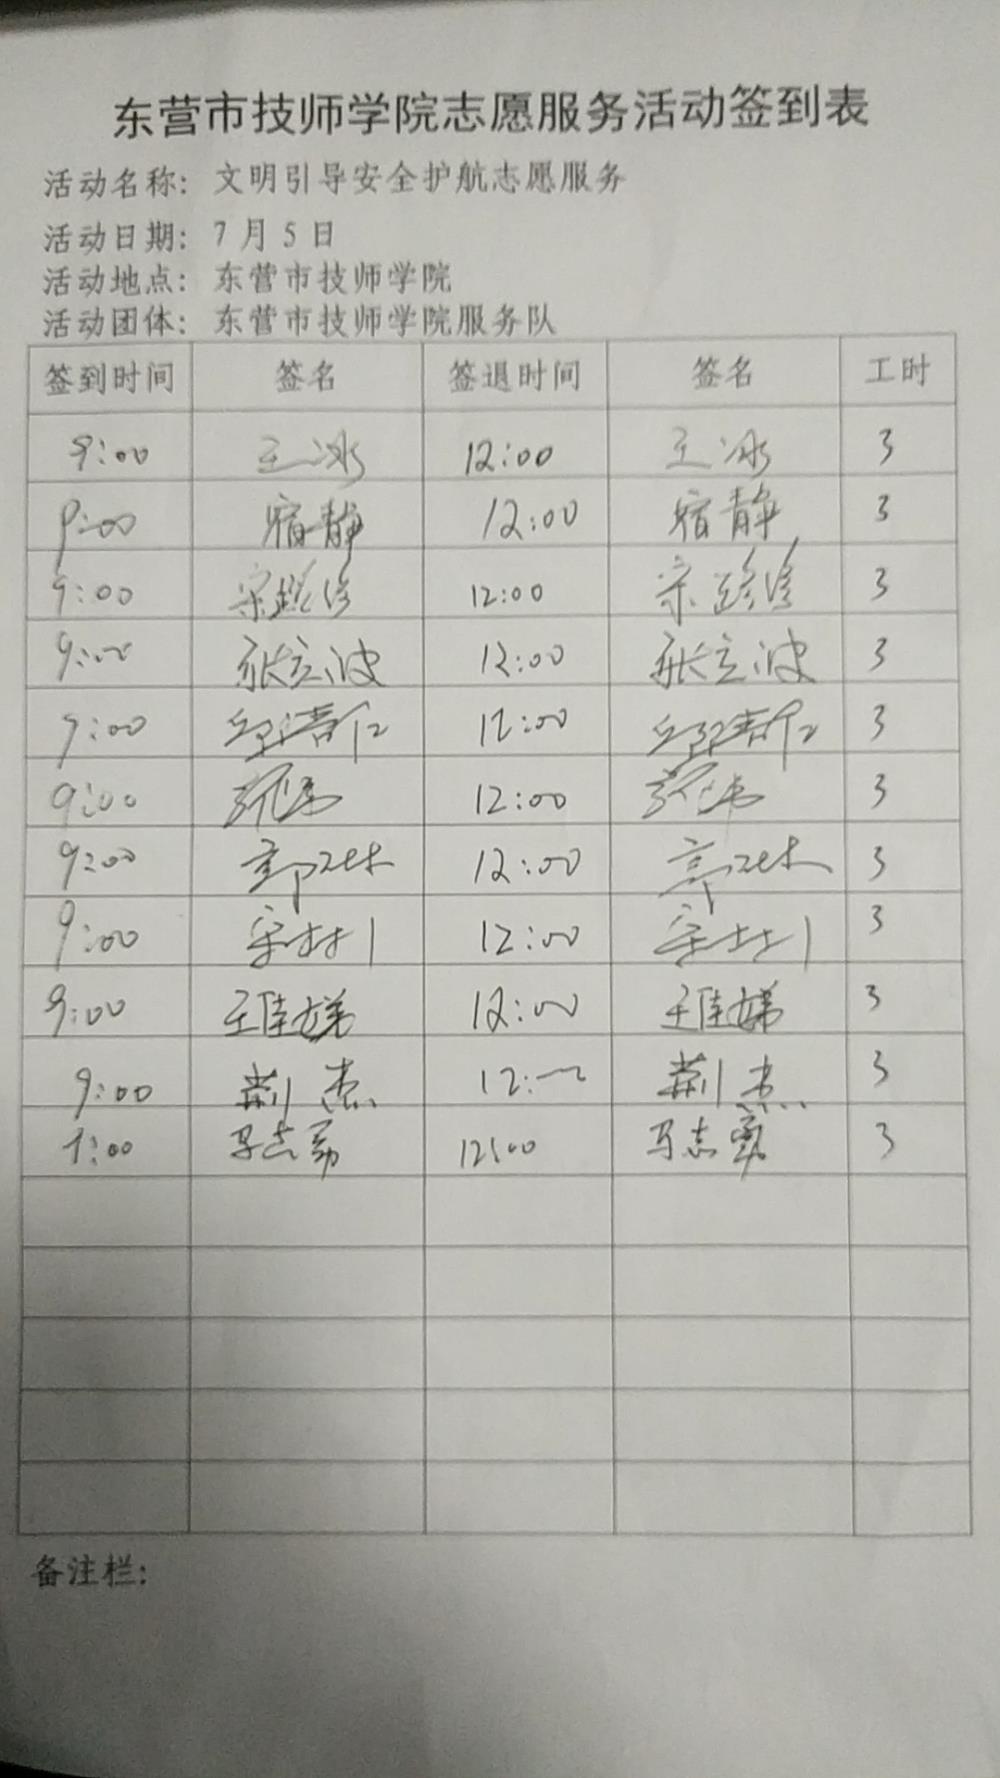 东营市技师学院志愿服务活动签到表
活动名称: 文明引导安全护航志愿服务
活动日期: 7月5日
活动地点: 东营市技师学院
活动团体: 东营市技师学院服务队
签到时间 签名 签退时间 签名 工时
9:00 王冰 12:00 王冰 3
9:00 宿静 12:00 宿静 3
9:00 宋 12:00 宋 3
9:00 张立波 12:00 张立波 3
9:00 邱清仁 12:00 邱清仁 3
9:00 12:00 3
9:00 郭 12:00 郭 3
9:00 宋 12:00 宋 3
9:00 王佳娣 12:00 王佳娣 3
9:00 荆杰 12:00 荆杰 3
9:00 马志勇 12:00 马志勇 3
备注栏: